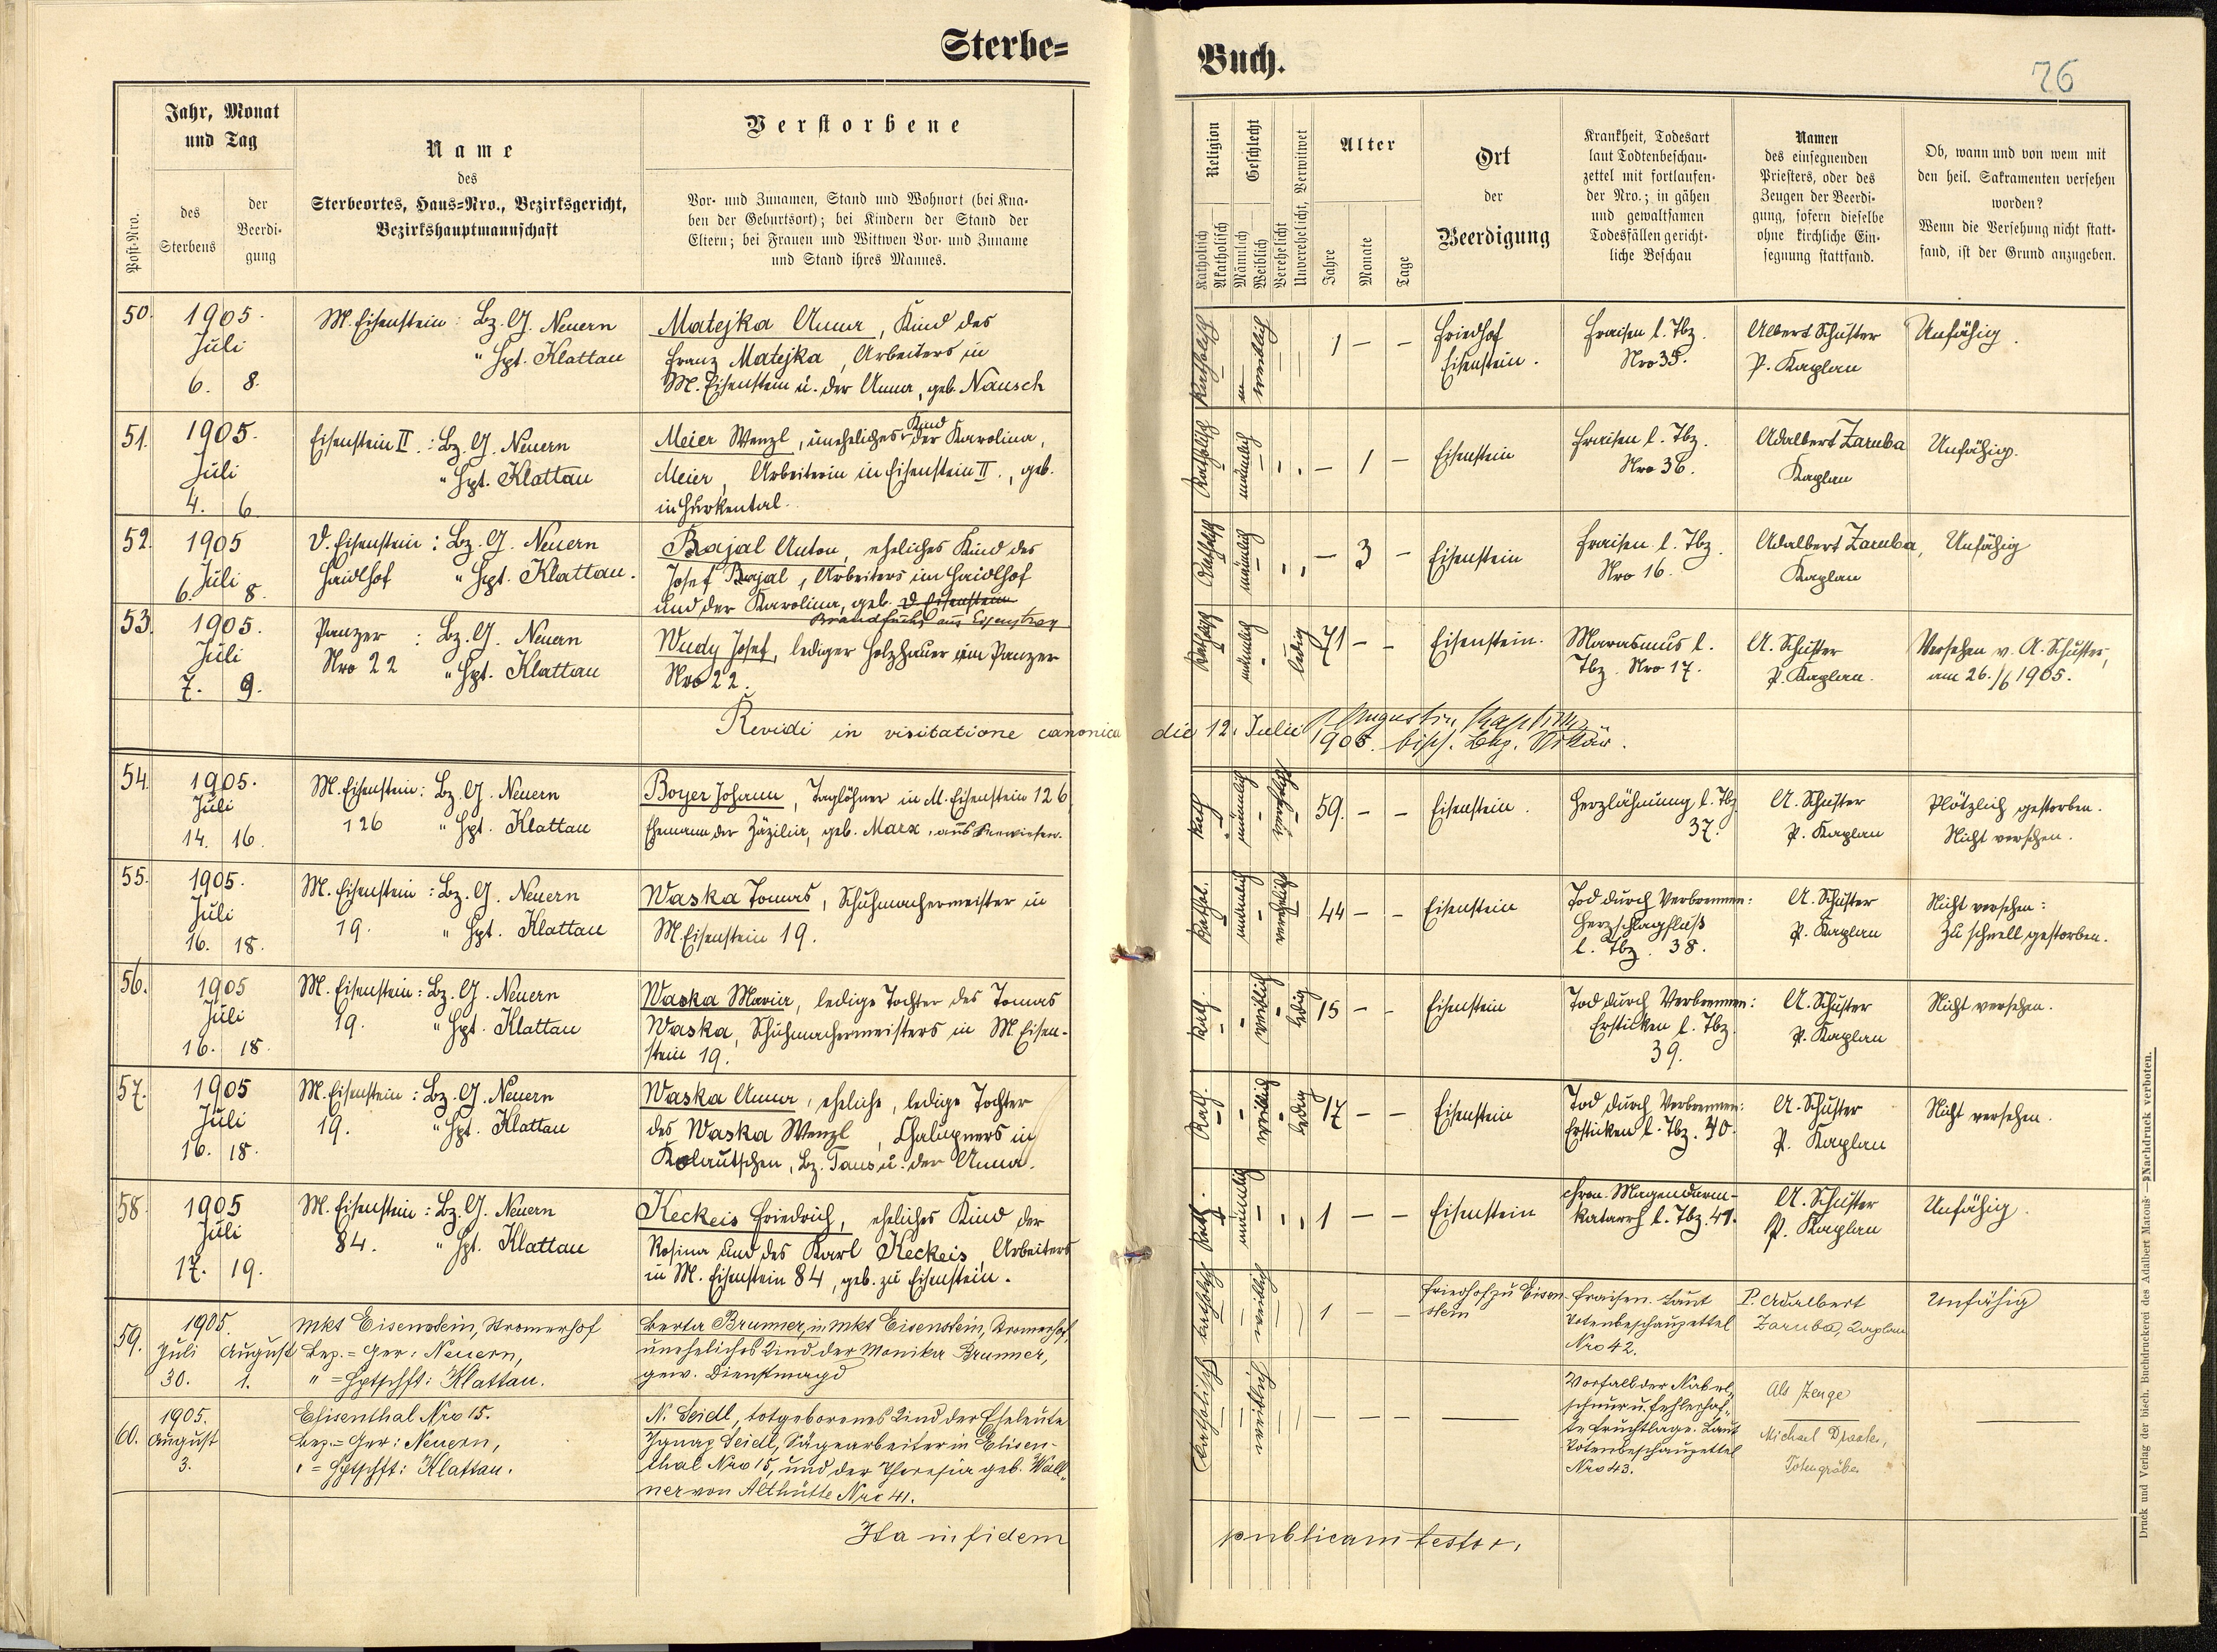 Sterbe=
Buch.
76
Post-Nro.
Jahr, Monat
und Tag
des
Sterbens
der
Beerdi-
gung
Name
des
Sterbeortes, Haus=Nro., Bezirksgericht,
Bezirkshauptmannschaft
Verstorbene
Vor- und Zunamen, Stand und Wohnort (bei Kna-
ben der Geburtsort); bei Kindern der Stand der
Eltern; bei Frauen und Wittwen Vor- und Zuname
und Stand ihres Mannes.
Religion
Katholisch
Akatholisch
Geschlecht
Männlich
Weiblich
Verehelicht
Unverehelicht, Verwitwet
Alter
Jahre
Monate
Tage
Ort
der
Beerdigung
Krankheit, Todesart
laut Todtenbeschau-
zettel mit fortlaufen-
der Nro.; in gähen
und gewaltsamen
Todesfällen gericht-
liche Beschau
Namen
des einsegnenden
Priesters, oder des
Zeugen der Beerdi-
gung, sofern dieselbe
ohne kirchliche Ein-
segnung stattfand.
Ob, wann und von wem mit
den heil. Sakramenten versehen
worden?
Wenn die Versehung nicht statt-
fand, ist der Grund anzugeben.
50.
1905.
Juli
6. 8.
M. Eisenstein: Bz. G. Neuern
" Hpt. Klattau
Matejka Anna, Kind des
Franz Matejka, Arbeiters in
M. Eisenstein u. der Anna, geb. Nausch
Katholisch
weiblich
1 — —
Friedhof
Eisenstein.
Fraisen l. Tbz.
Nro 35.
Albert Schuster
P. Kaplan
Unfähig.
51.
1905.
Juli
4. 6.
Eisenstein II.: Bz. G. Neuern
" Hpt. Klattau
Meier Wenzl, uneheliches Kind der Karolina,
Meier, Arbeiterin in Eisenstein II., geb.
in Hurkental.
Katholisch
männlich
— 1 —
Eisenstein
Fraisen l. Tbz.
Nro 36.
Adalbert Zaruba
Kaplan
Unfähig.
52.
1905
Juli
6. 8.
D. Eisenstein: Bz. G. Neuern
Haidlhof " Hpt. Klattau.
Bajal Anton, eheliches Kind des
Josef Bajal, Arbeiters im Haidlhof
und der Karolina, geb. D. Eisenstein
Katholisch
männlich
— 3 —
Eisenstein
Fraisen l. Tbz.
Nro 16.
Adalbert Zaruba,
Kaplan
Unfähig
53.
1905.
Juli
7. 9.
Panzer : Bz. G. Neuern
Nro 22 " Hpt. Klattau
Wudy Josef, lediger Holzhauer im Panzer
Nro 22.
Katholisch
männlich
ledig
71 — —
Eisenstein.
Marasmus l.
Tbz. Nro 17.
A. Schuster
P. Kaplan.
Versehen v. A. Schuster,
am 26./6 1905.
Revidi in visitatione canonica die 12. Julii
1905. bisch. Bez. Vikär.
54.
1905.
Juli
14. 16.
M. Eisenstein: Bz. G. Neuern
126 " Hpt. Klattau
Boyer Johann, Taglöhner in M. Eisenstein 126,
Ehemann der Zäzilia, geb. Marx, aus Seewiesen.
Kath.
männlich
verehelicht
59. — —
Eisenstein.
Herzlähmung l. Tbz.
37.
A. Schuster
P. Kaplan
Plötzlich gestorben.
Nicht versehen.
55.
1905.
Juli
16. 18.
M. Eisenstein: Bz. G. Neuern
19. " Hpt. Klattau
Waska Tomas, Schuhmachermeister in
M. Eisenstein 19.
Kathol.
männlich
verehelicht
44 — —
Eisenstein
Tod durch Verbrennen:
Herzschlagfluß
l. Tbz. 38.
A. Schuster
P. Kaplan
Nicht versehen:
Zu schnell gestorben.
56.
1905
Juli
16. 18.
M. Eisenstein: Bz. G. Neuern
19. " Hpt. Klattau
Waska Maria, ledige Tochter des Tomas
Waska, Schuhmachermeisters in M. Eisen-
stein 19.
Kath.
weiblich
ledig
15 — —
Eisenstein
Tod durch Verbrennen:
Ersticken l. Tbz.
39.
A. Schuster
P. Kaplan
Nicht versehen.
57.
1905
Juli
16. 18.
M. Eisenstein: Bz. G. Neuern
19. " Hpt. Klattau
Waska Anna, eheliche, ledige Tochter
des Waska Wenzl, Chalupners in
Kolautschen, Bz. Taus u. der Anna.
Kath.
weiblich
ledig
17 — —
Eisenstein
Tod durch Verbrennen:
Ersticken l. Tbz. 40.
A. Schuster
P. Kaplan
Nicht versehen.
58.
1905
Juli
17. 19.
M. Eisenstein: Bz. G. Neuern
84. " Hpt. Klattau
Keckeis Friedrich, eheliches Kind der
Rosina und des Karl Keckeis, Arbeiters
in M. Eisenstein 84, geb. zu Eisenstein.
Kath.
männlich
1 — —
Eisenstein
chron. Magendarm-
katarrh l. Tbz. 41.
A. Schuster
P. Kaplan
Unfähig.
59.
1905.
Juli August
30. 1.
Mkt Eisenstein, Stromerhof
Bez.=Ger: Neuern,
" =Hptschft: Klattau.
Berta Brunner, in Mkt Eisenstein, Stromerhof,
uneheliches Kind der Monika Brunner,
gew. Dienstmagd
katholisch
weiblich
1 — —
Friedhof zu Eisen-
stein
Fraisen. Laut
Totenbeschauzettel
Nro 42.
P. Adalbert
Zaruba, Kaplan
Unfähig
60.
1905.
August
3.
Elisenthal Nro 15.
Bez.=Ger: Neuern,
" =Hptschft: Klattau.
N. Seidl, totgeborenes Kind der Eheleute
Ignaz Seidl, Sägearbeiter in Elisen-
thal Nro 15, und der Theresia geb. Wall-
ner von Althütte Nro 41.
Katholisch
weiblich
— — —
Vorfall der Nabel-
schnur u. fehlerhaf-
te Fruchtlage. Laut
Totenbeschauzettel
Nro 43.
Als Zeuge
Michael
Totengräber
Ita in fidem publicam testor.
Druck und Verlag der bisch. Buchdruckerei des Adalbert Matouš — Nachdruck verboten.